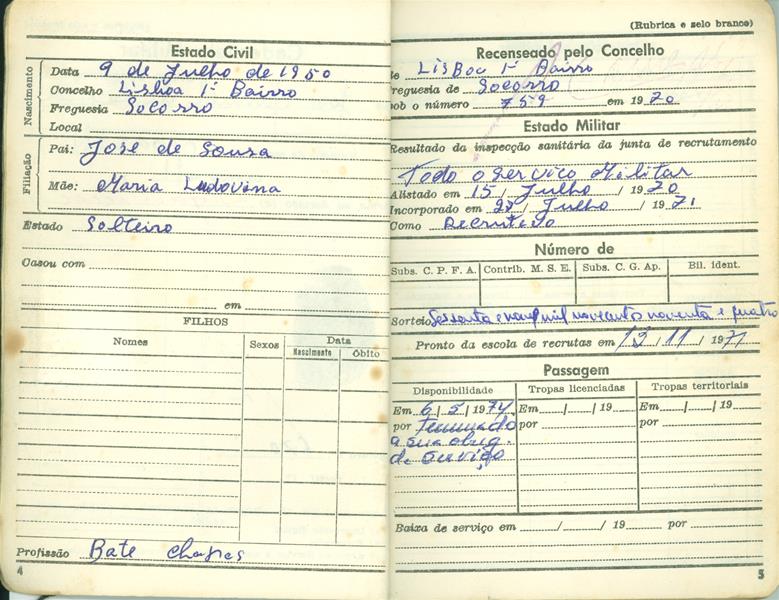 Estado Civil
Nascimento
Data 9 de Julho de 1950
Concelho Lisboa 1º Bairro
Freguesia Socorro
Local
Filiação
Pai: José de Sousa
Mãe: Maria Ludovina
Estado Solteiro
Casou com
em
FILHOS
Nomes Sexos Data
Nascimento Óbito
Profissão Bate chapas
4
(Rubrica e selo branco)
Recenseado pelo Concelho
de Lisboa 1º Bairro
freguesia de Socorro
sob o número 759 em 1970
Estado Militar
Resultado da inspecção sanitária da junta de recrutamento
Todo o Serviço Militar
Alistado em 15 / Julho / 1970
Incorporado em / Julho / 1971
Como Recrutado
Número de
Subs. C. P. F. A. Contrib. M. S. E. Subs. C. G. Ap. Bil. ident.
Sorteio Sessenta e nove mil novecentos noventa e quatro
Pronto da escola de recrutas em 13 / 11 / 1971
Passagem
Disponibilidade Tropas licenciadas Tropas territoriais
Em 6 / 5 / 1974 Em / / 19 Em / / 19
por Terminado por por
a sua obrig.
de serviço
Baixa de serviço em / / 19 por
5